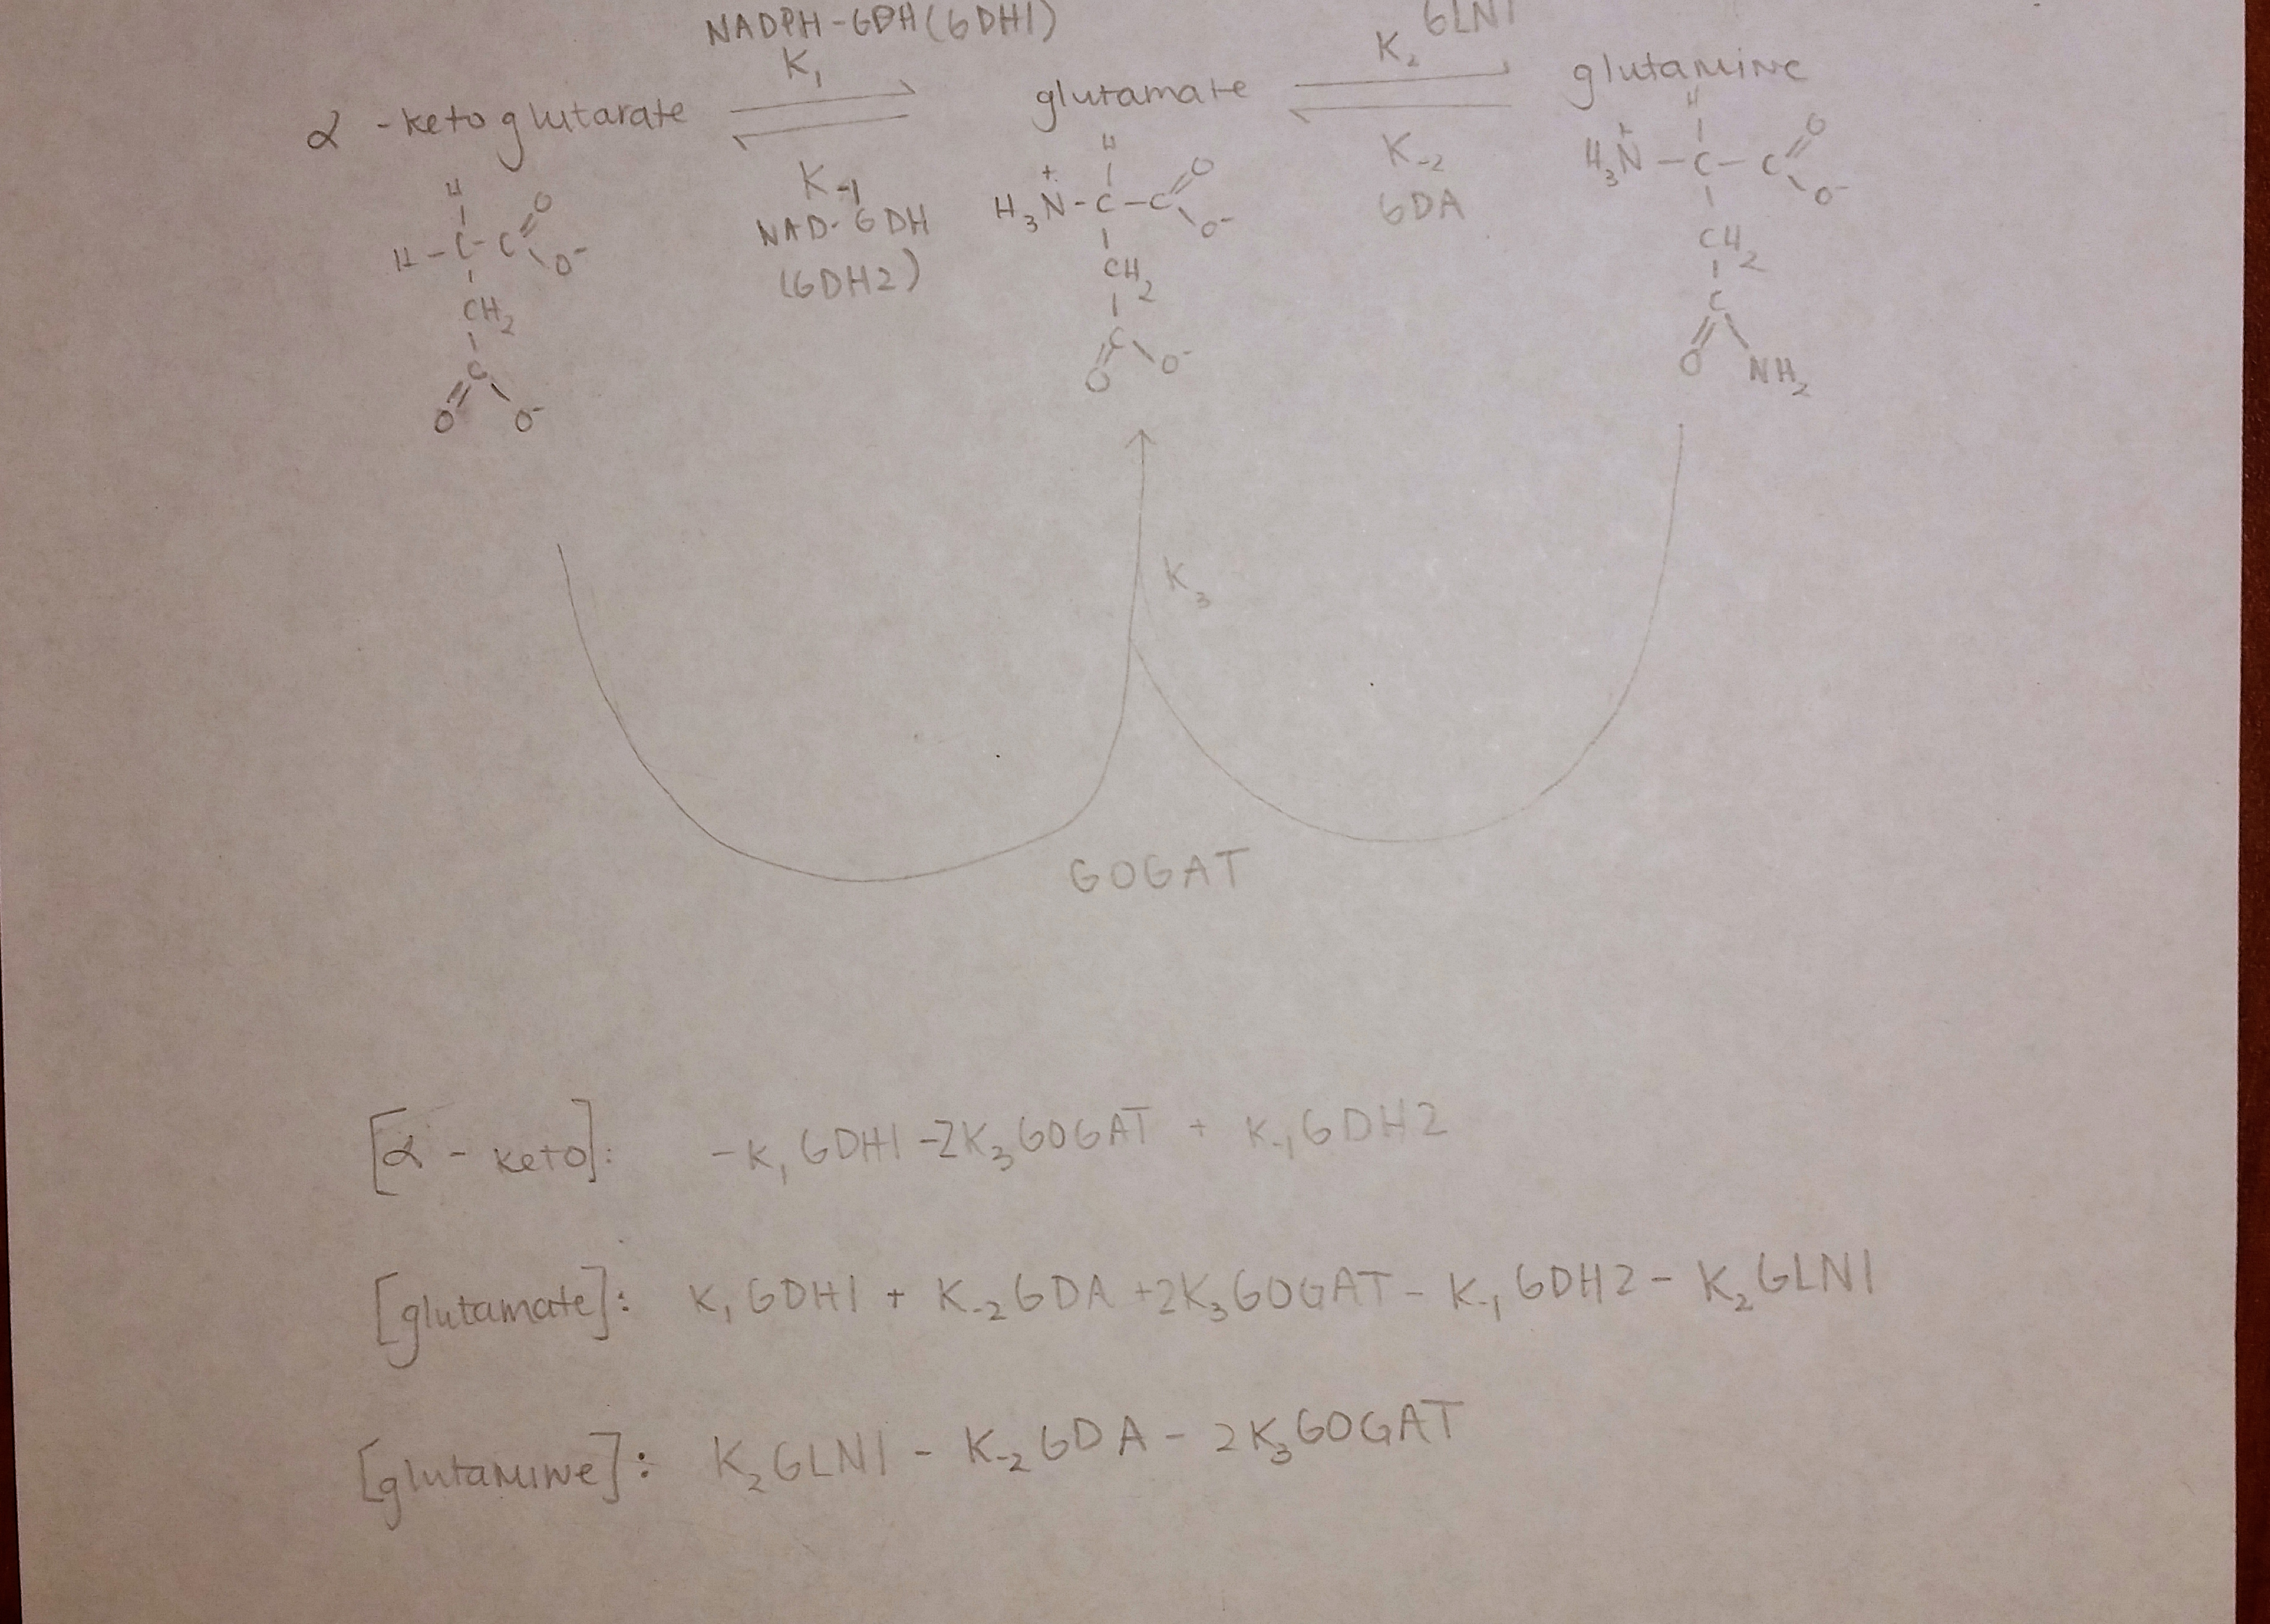 NADPH-GDH(GDH1)
K₁
K₂ GLN1
α-ketoglutarate
glutamate
glutamine
K₋₁
NAD-GDH
(GDH2)
K₋₂
GDA
H
H-C-C O
O⁻
CH₂
C
O O⁻
H
H₃N⁺-C-C O
O⁻
CH₂
C
O O⁻
H
H₃N⁺-C-C O
O⁻
CH₂
C
O NH₂
K₃
GOGAT
[α-keto]: -K₁GDH1-2K₃GOGAT + K₋₁GDH2
[glutamate]: K₁GDH1 + K₋₂GDA+2K₃GOGAT-K₋₁GDH2-K₂GLN1
[glutamine]: K₂GLN1-K₋₂GDA-2K₃GOGAT